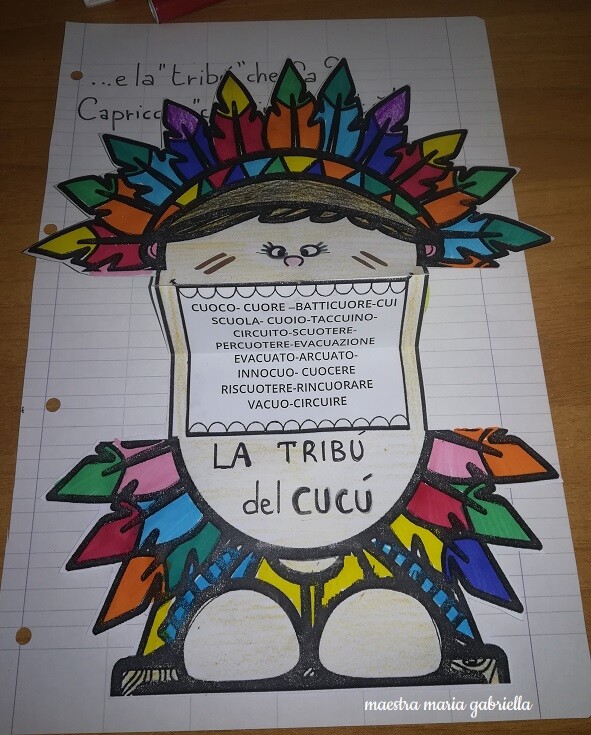 ...e la "tribú" che fa?
Capricc
CUOCO- CUORE –BATTICUORE-CUI
SCUOLA- CUOIO-TACCUINO-
CIRCUITO-SCUOTERE-
PERCUOTERE-EVACUAZIONE
EVACUATO-ARCUATO-
INNOCUO- CUOCERE
RISCUOTERE-RINCUORARE
VACUO-CIRCUIRE
LA TRIBÚ
del CUCÚ
maestra maria gabriella